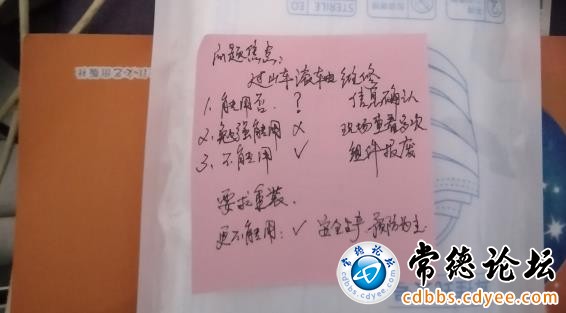 STERILE EO
问题焦点:
过山车滚轴维修
1. 能用否. ? 信息确认
2. 勉强能用 × 现场查看多次
3. 不能用 ✓ 组件报废
要求重装.
更不能用: ✓ 安全生产 预防为主
常德论坛
cdbbs.cdyee.com